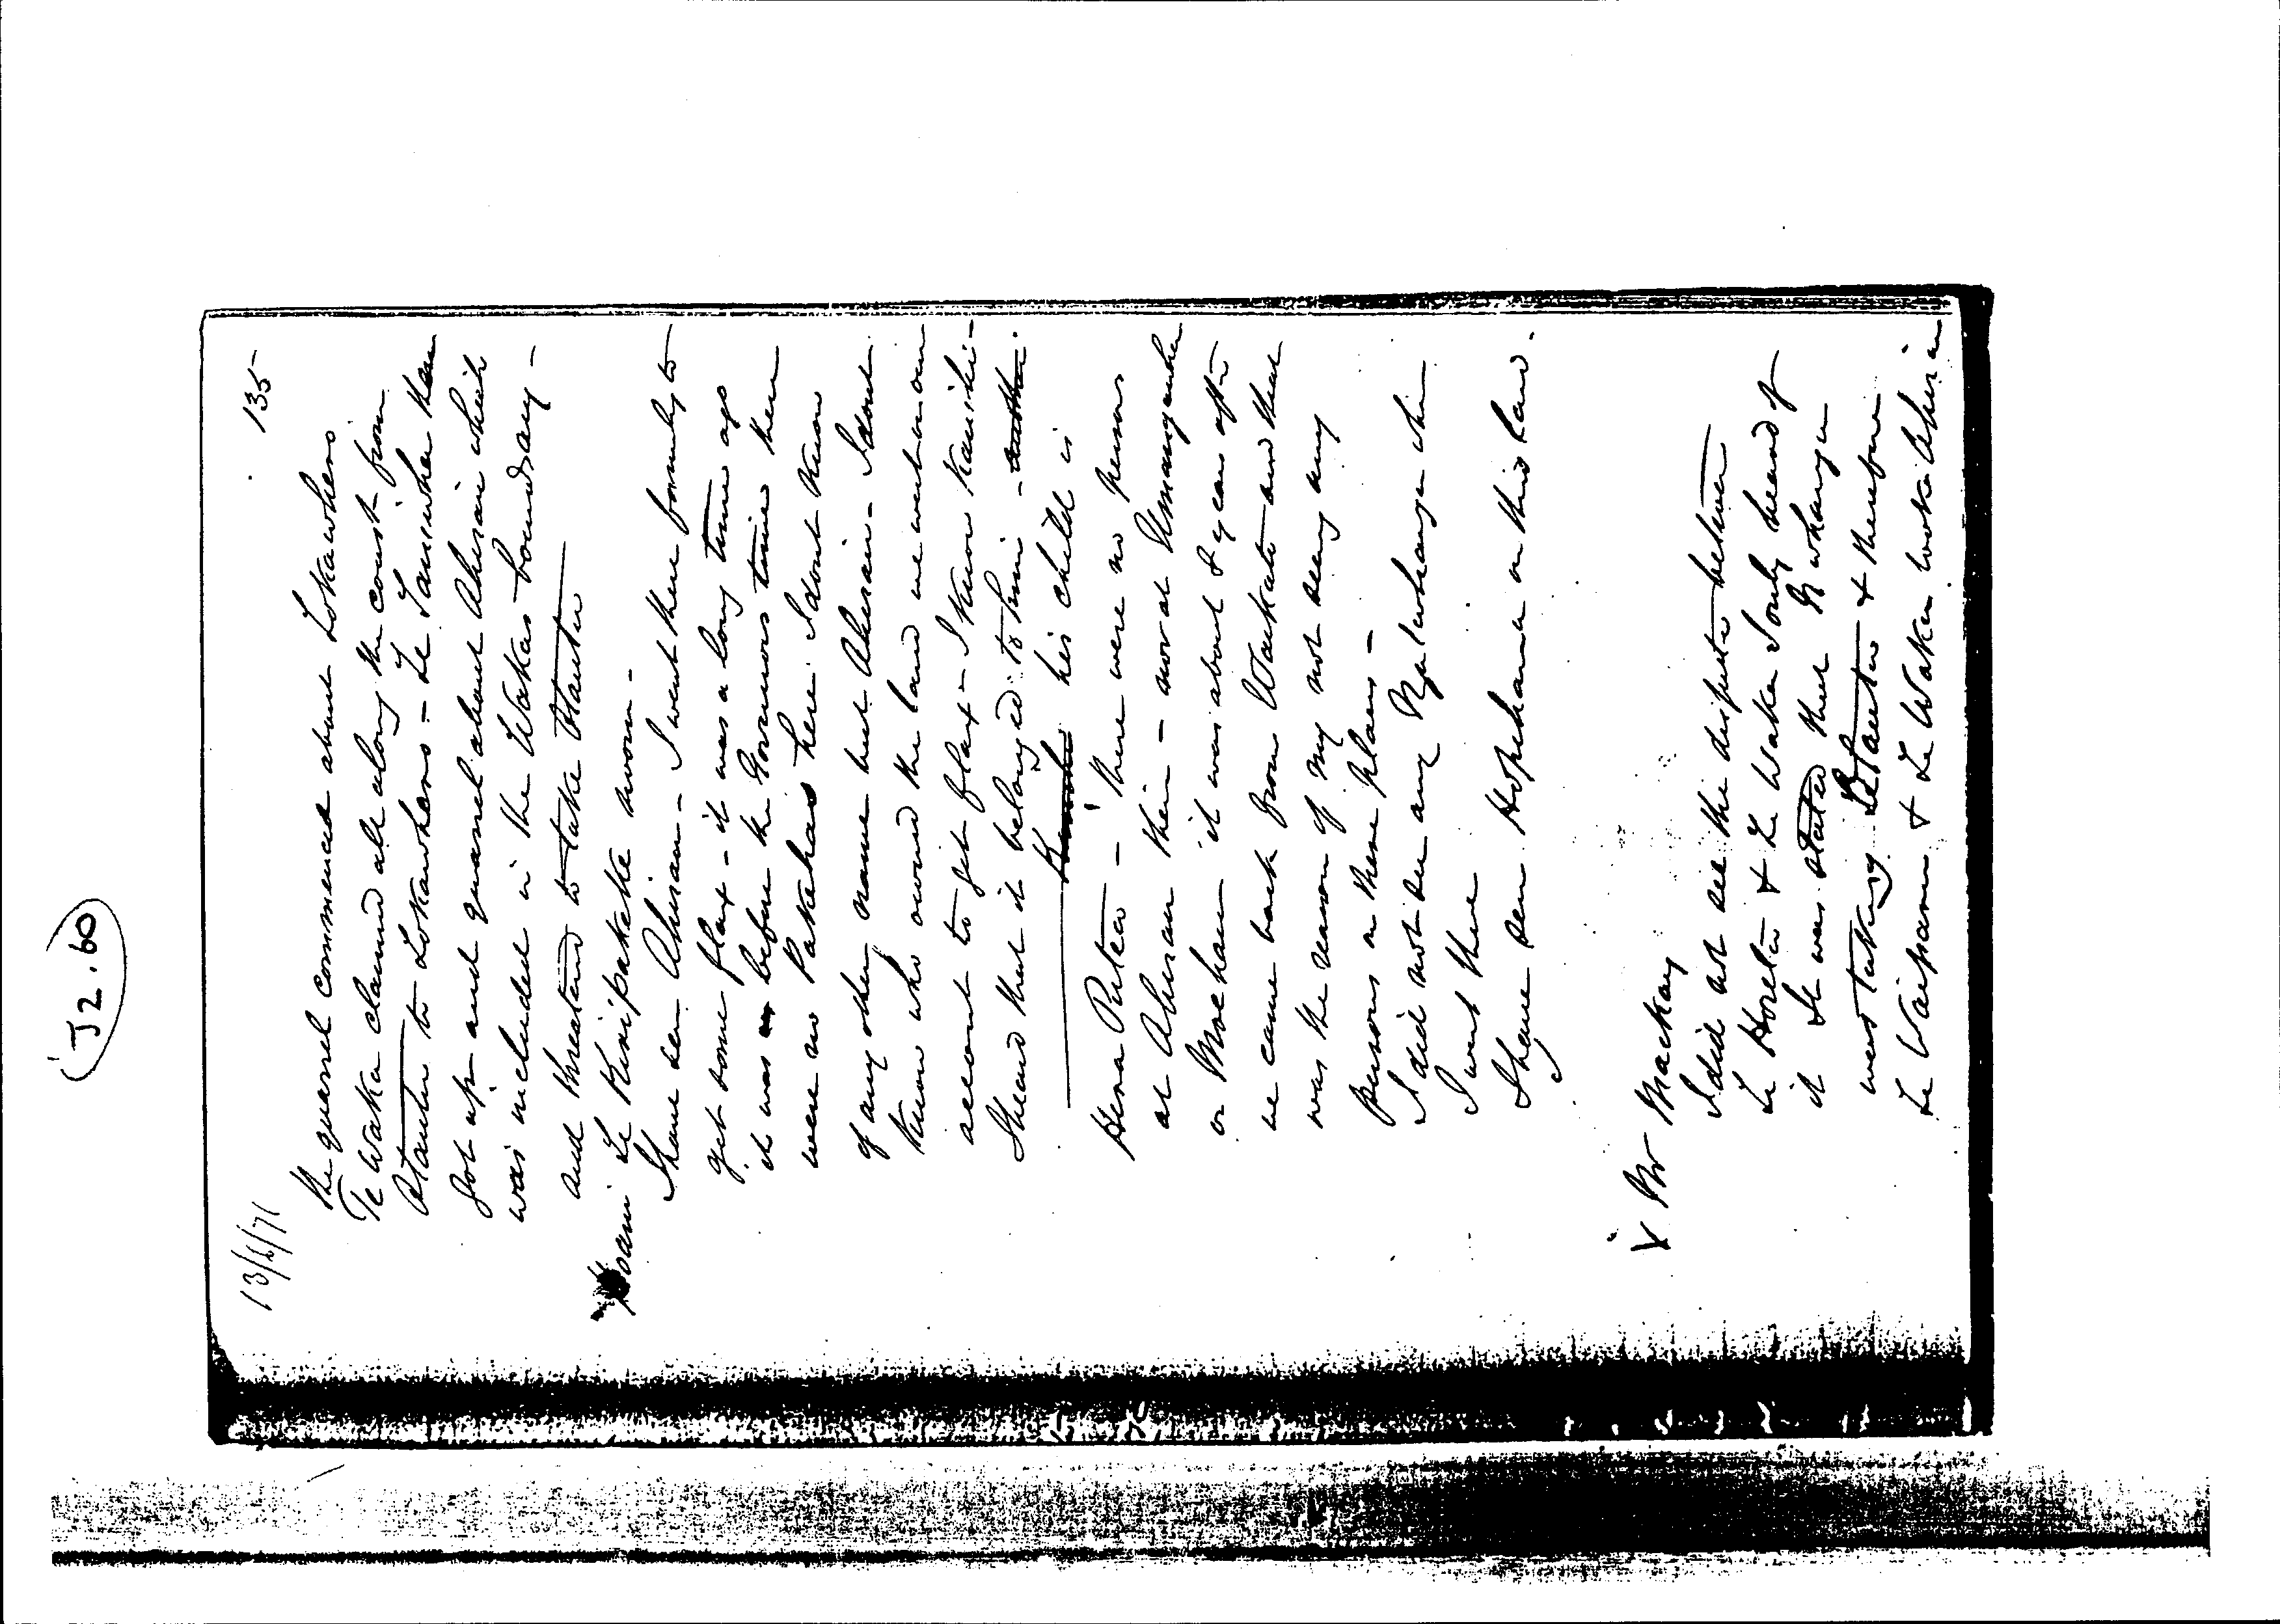 J2.60
13/6/71 135
the quarrel commenced about Tokawhero
Te Waka claimed all along the coast from
Otautu to Tokawhero - Te Taniwha then
got up and quarrel about Ahirau which
was included in the Wakas boundary -
and threatened to take Otautu
Hoani Te Kiripakeke sworn -
I have seen Ahirau - I went there formerly to
get some flax - it was a long time ago
it was before the Governors time there
were no Pakehas here I dont know
of any other name but Ahirau - I dont
know who owned the land we went on our
account to get flax - I knew
I heard that it belonged to him -
his child is
Hera Puteo - there were no persons
at Ahirau then - nor at
or Moehau it was about 2 years after
we came back from Waikato and that
was the reason of my not seeing any
persons on these places -
I did not see any when
I went there
I have seen Hopihana on this land.
X Mr Mackay
I did not see the dispute between
Te Horeta & Te Waka I only heard of
it It was stated that
was taking Otautu & therefore
Te Waipari & Te Waka took Ahirau